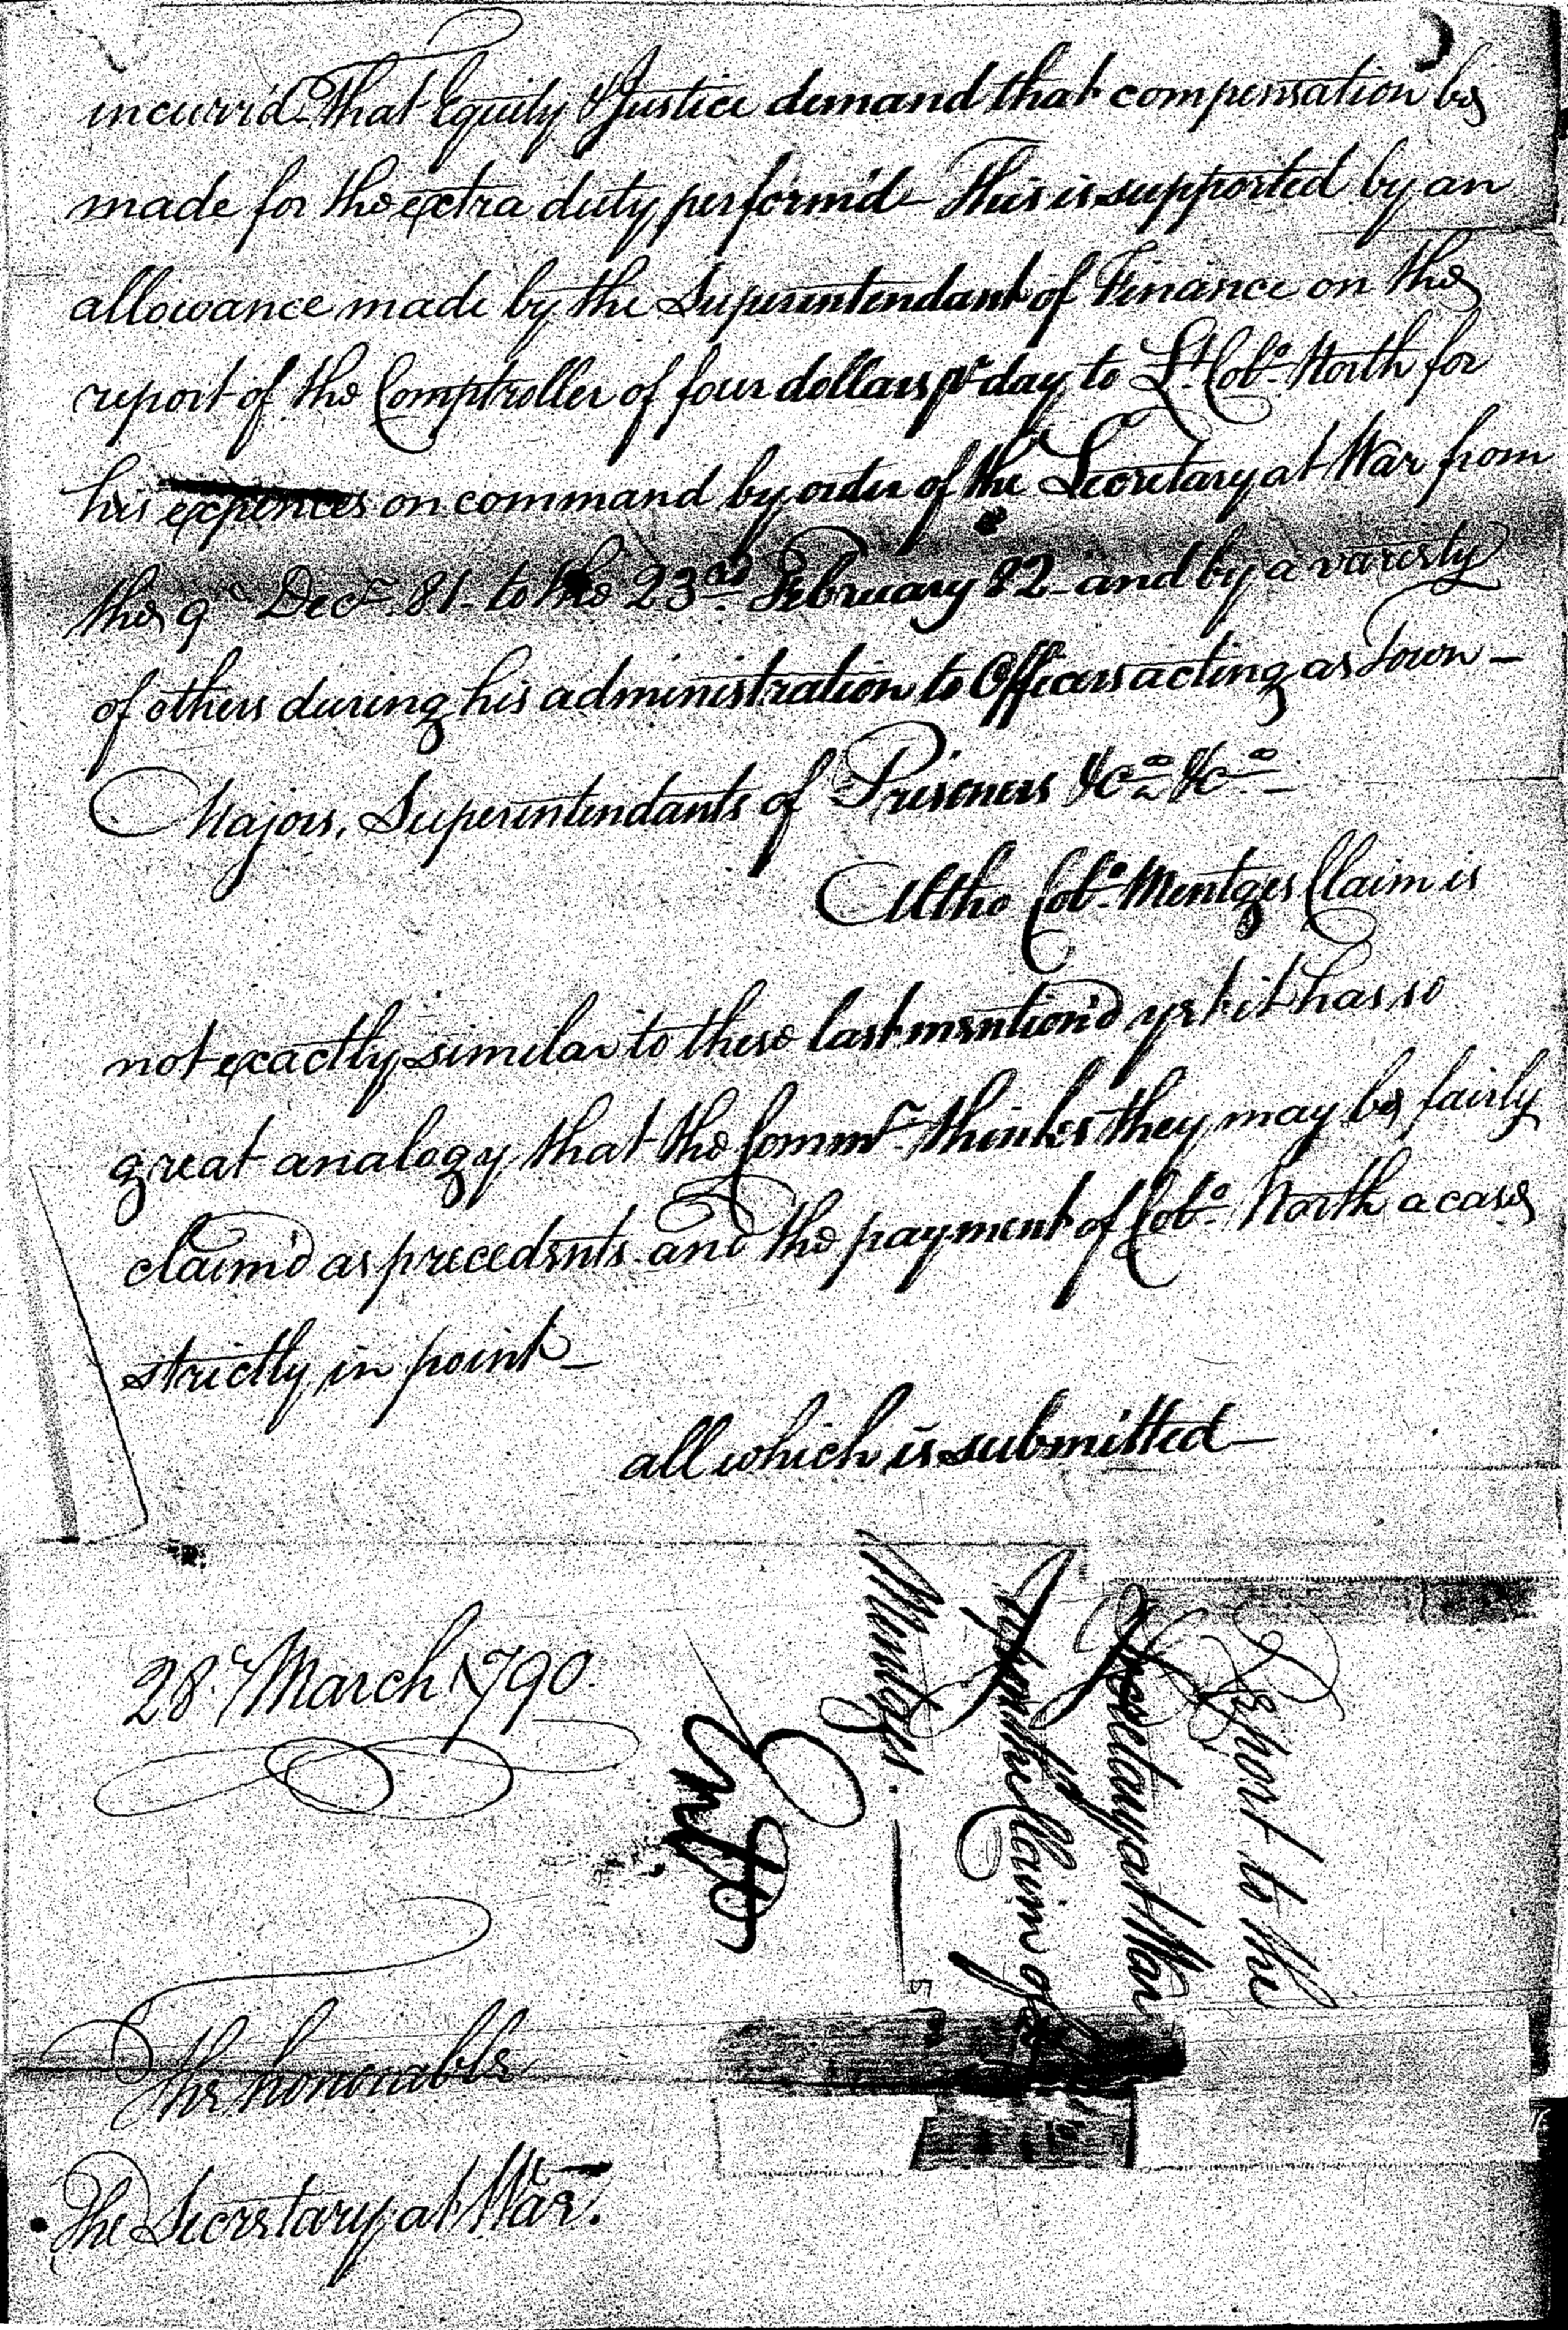 incurr'd. That Equity & Justice demand that compensation be
made for the extra duty perform'd - This is supported by an
allowance made by the Superintendant of Finance on the
report of the Comptroller of four dollars pr day to Lt. Colo. North for
his expences on command by order of the Secretary at War from
the 9th Decr. 81 - to the 23rd February 82 - and by a variety
of others during his administration to Officers acting as Town -
Majors, Superintendants of Prisoners &ca &ca -
Altho Colo. Mentges Claim is
not exactly similar to these last mention'd yet it has so
great analogy that the Commr. thinks they may be fairly
claim'd as precedents - and the payment of Colo. North a case
strictly in point -
all which is submitted -
28th March 1790.
The honorable
The Secretary at War.
Report to the
Secretary at War
upon the Claim of
Mentges.
Entd